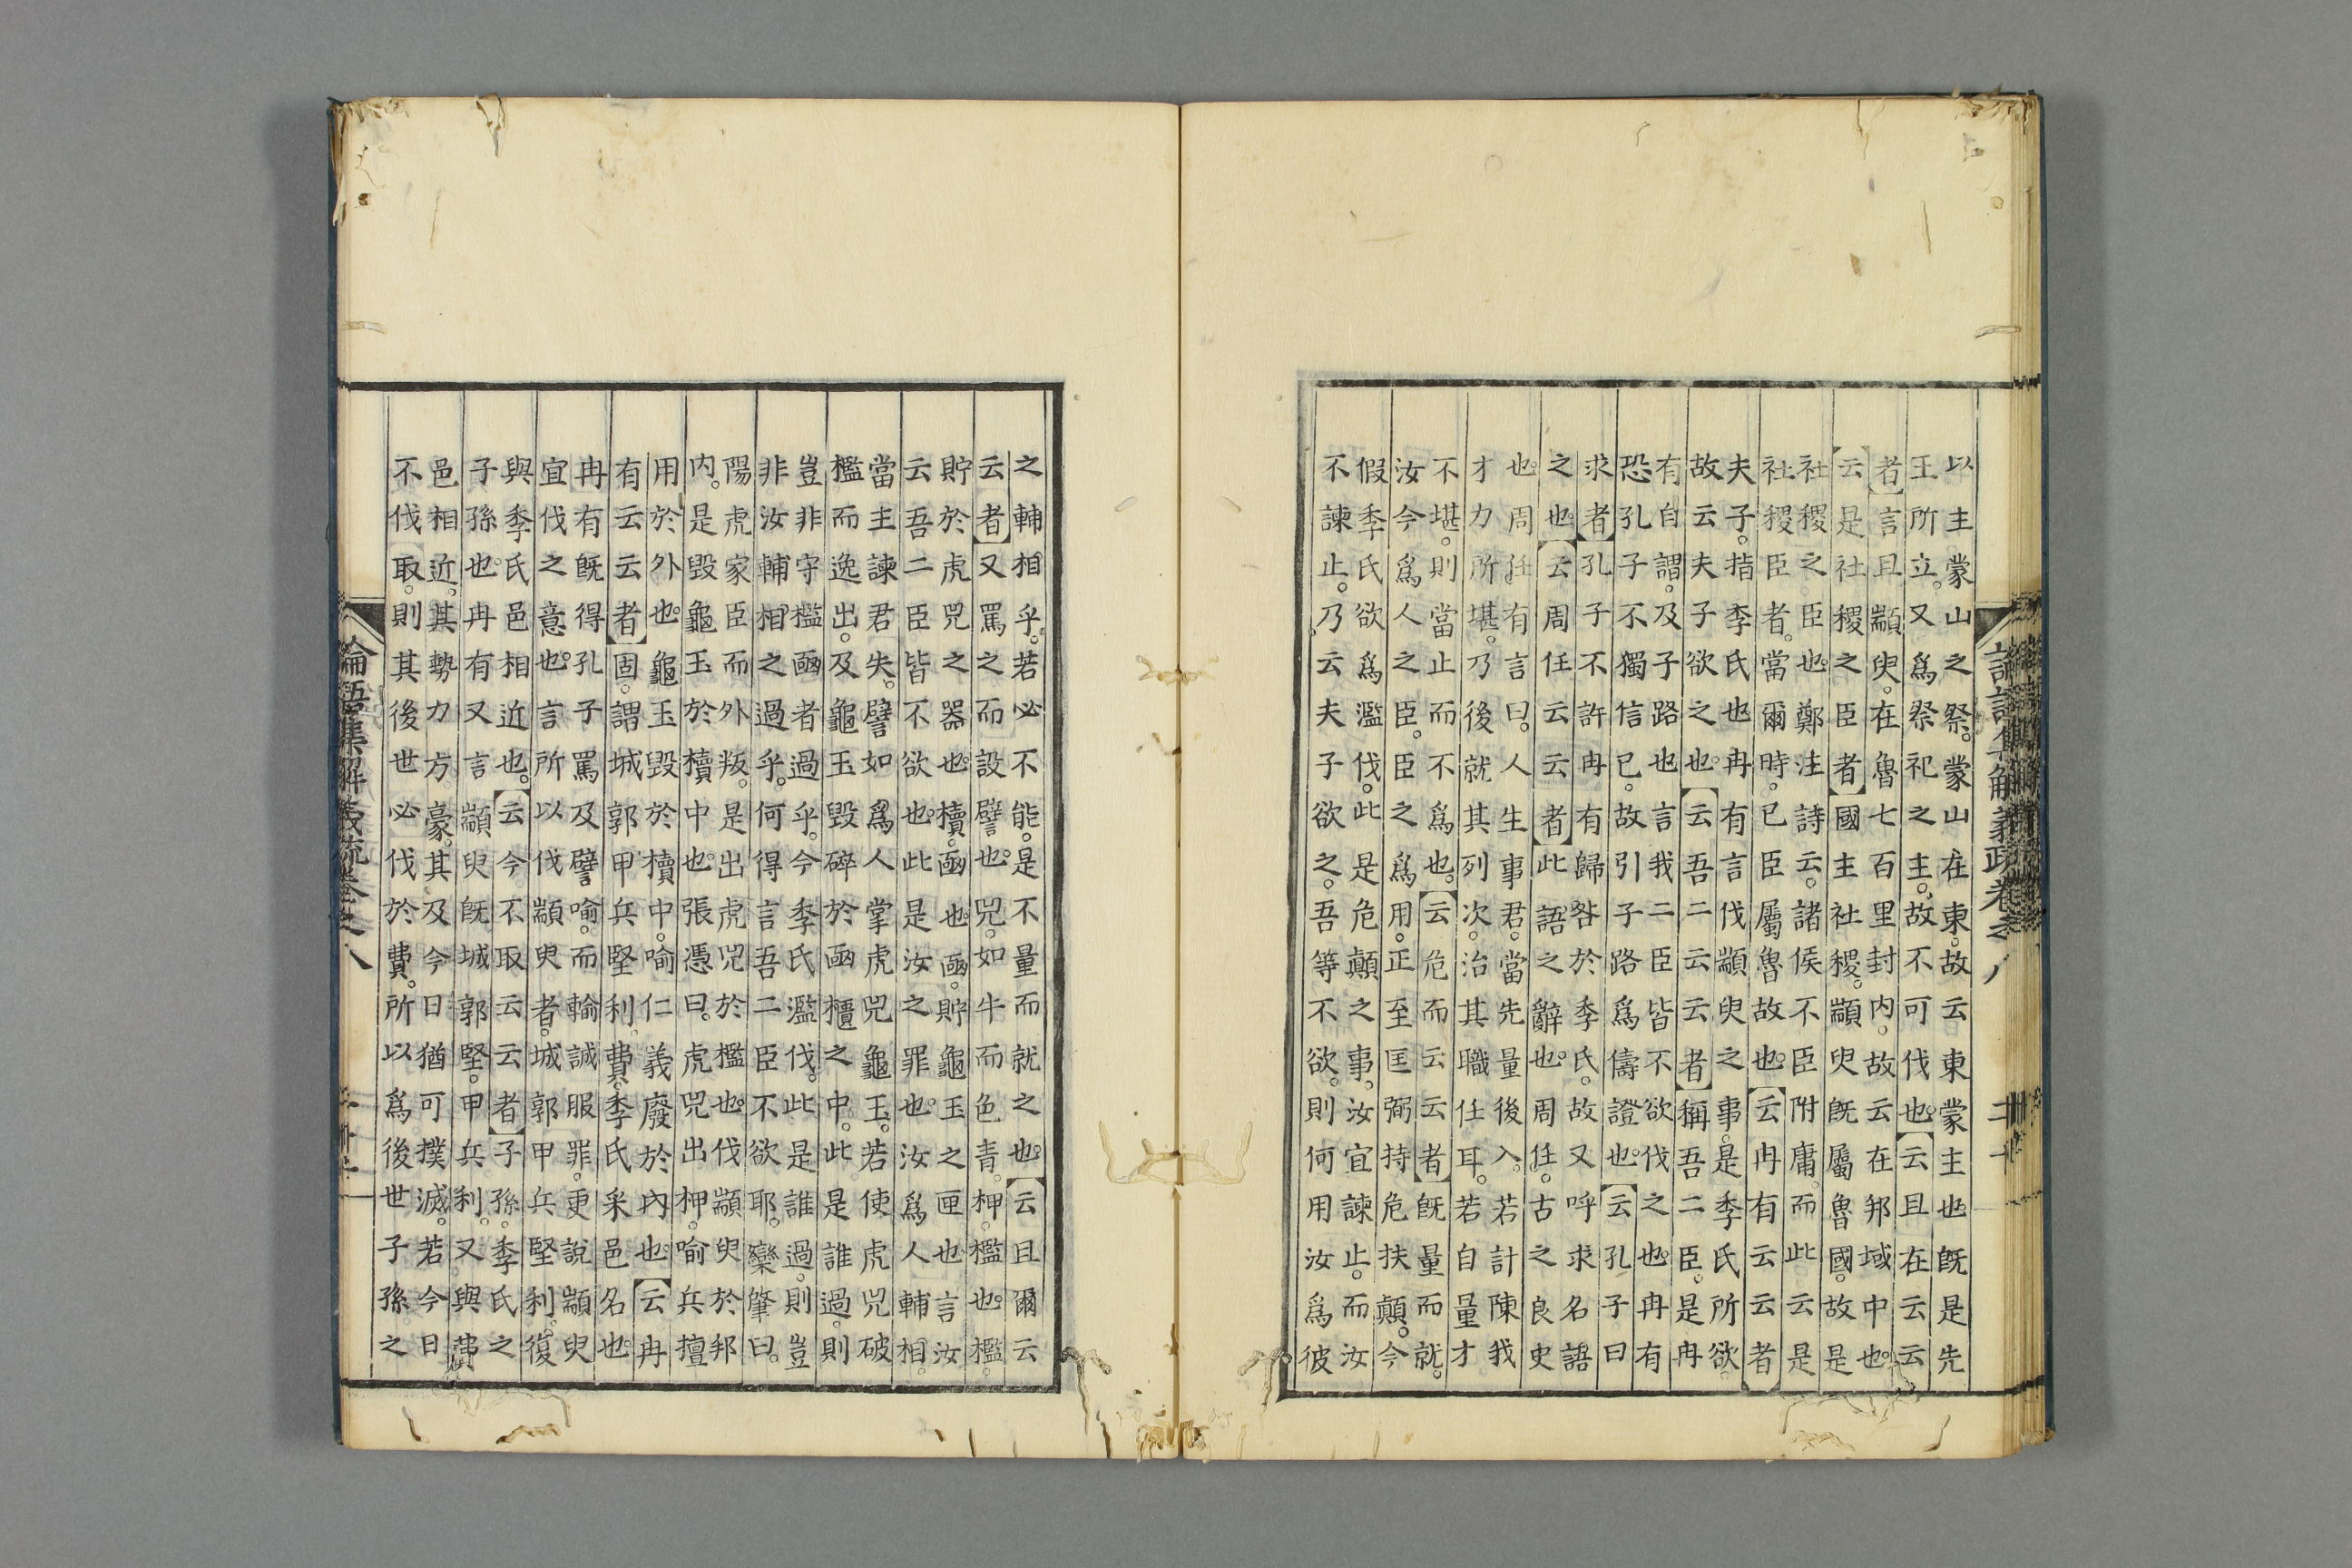 以主蒙山之祭。蒙山在東。故云東蒙主也既是先
王所立。又爲祭祀之主。故不可伐也。【云且在云云
者】言且顓臾。在魯七百里封内。故云在邦域中也。
【云是社稷之臣者】國主社稷。顓臾既屬魯國。故是
社稷之臣也。鄭注詩云。諸侯不臣附庸。而此云是
社稷臣者。當爾時。已臣屬魯故也。【云冉有云云者】
夫子。指季氏也冉有言伐顓臾之事。是季氏所欲。
故云夫子欲之也。【云吾二云云者】稱吾二臣。是冉
有自謂。及子路也言我二臣皆不欲伐之也。冉有
恐孔子不獨信已。故引子路爲儔證也。【云孔子曰
求者】孔子不許冉有歸咎於季氏。故又呼求名語
之也。【云周任云云者】此語之辭也。周任。古之良史
也。周任有言曰。人生事君。當先量後入。若計陳我
才力所堪。乃後就其列次。治其職任耳。若自量才
不堪。則當止而不爲也。【云危而云云者】既量而就。
汝今爲人之臣。臣之爲用。正至匡弼持危扶顛。今
假季氏欲爲濫伐。此是危顛之事。汝宜諫止。而汝
不諫止。乃云夫子欲之。吾等不欲。則何用汝爲彼
之輔相乎。若必不能。是不量而就之也。【云且爾云
云者】又罵之而設譬也。兕。如牛而色青。柙。檻也。檻。
貯於虎兕之器也。櫝。凾也。凾。貯龜玉之匣也言汝
云吾二臣皆不欲也。此是汝之罪也。汝爲人輔相。
當主諫君失。譬如爲人掌虎兕龜玉。若使虎兕破
檻而逸出。及龜玉毀碎於凾櫃之中。此是誰過。則
豈非守檻凾者過乎。今季氏濫伐。此是誰過。則豈
非汝輔相之過乎。何得言吾二臣不欲耶。欒肇曰。
陽虎家臣而外叛。是出虎兕於檻也。伐顓臾於邦
内。是毀龜玉於櫝中也。張憑曰。虎兕出柙。喻兵擅
用於外也。龜玉毀於櫝中。喻仁義廢於内也。【云冉
有云云者】固。謂城郭甲兵堅利。費。季氏采邑名也。
冉有既得孔子罵及譬喻。而輸誠服罪。更說顓臾
宜伐之意也。言所以伐顓臾者。城郭甲兵堅利。復
與季氏邑相近也。【云今不取云云者】子孫。季氏之
子孫也。冉有又言顓臾既城郭堅。甲兵利。又與費
邑相近。其勢力方豪。其及今日猶可撲滅。若今日
不伐取。則其後世必伐於費。所以爲後世子孫之
論語集解義疏卷之八